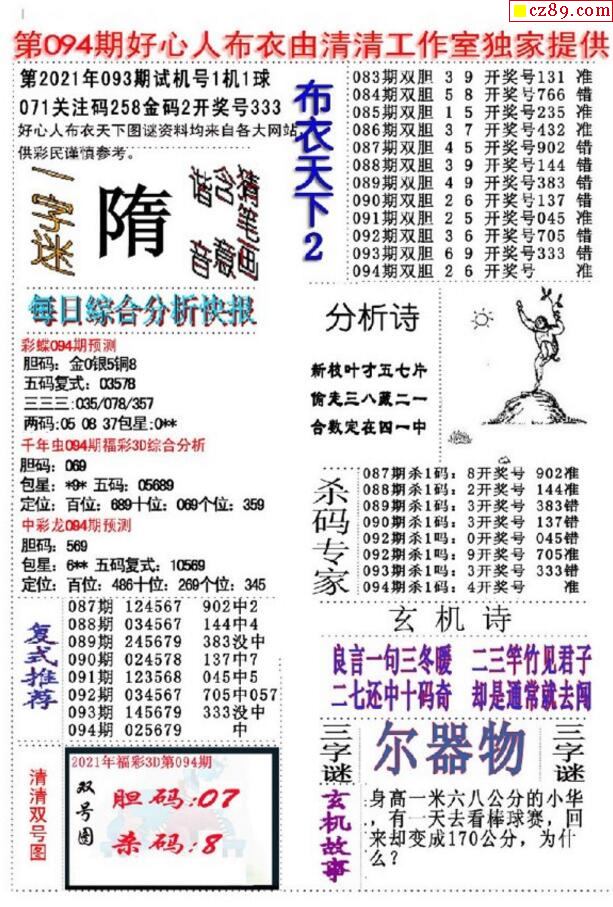 cz89.com
第094期好心人布衣由清清工作室独家提供
第2021年093期试机号1机1球
071关注码258金码2开奖号333
好心人布衣天下图谜资料均来自各大网站,
供彩民谨慎参考。
一字迷
隋
猜笔画
含意
谐音
每日综合分析快报
彩蝶094期预测
胆码：金0银5铜8
五码复式：03578
三三三:035/078/357
两码:05 08 37包星:0**
千年虫094期福彩3D综合分析
胆码：069
包星：*9* 五码：05689
定位：百位：689十位：069个位：359
中彩龙094期预测
胆码：569
包星：6** 五码复式：10569
定位：百位：486十位：269个位：345
复式推荐
087期 124567 902中2
088期 034567 144中4
089期 245679 383没中
090期 024578 137中7
091期 123568 045中5
092期 034567 705中057
093期 145679 333没中
094期 025679 中
清清双号图
2021年福彩3D第094期
双号图
胆码:07
杀码:8
布衣天下2
083期双胆 3 9 开奖号131 准
084期双胆 5 8 开奖号766 错
085期双胆 1 5 开奖号235 准
086期双胆 3 7 开奖号432 准
087期双胆 4 5 开奖号902 错
088期双胆 3 9 开奖号144 错
089期双胆 4 9 开奖号383 错
090期双胆 2 6 开奖号137 错
091期双胆 2 5 开奖号045 准
092期双胆 3 6 开奖号705 错
093期双胆 6 9 开奖号333 错
094期双胆 2 6 开奖号 准
分析诗
新枝叶才五七片
偷先三八藏二一
合数定在四一中
杀码专家
087期杀1码：8开奖号 902准
088期杀1码：2开奖号 144准
089期杀1码：3开奖号 383错
090期杀1码：3开奖号 137错
092期杀1吗：0开奖号 045错
092期杀1吗：9开奖号 705准
093期杀1吗：3开奖号 333错
094期杀1码：4开奖号 准
玄机诗
良言一句三冬暖 二三竿竹见君子
二七还中十码奇 却是通常就去闯
三字谜
尔器物
三字谜
玄机故事
身高一米六八公分的小华
，有一天去看棒球赛，回
来却变成170公分，为什
么？